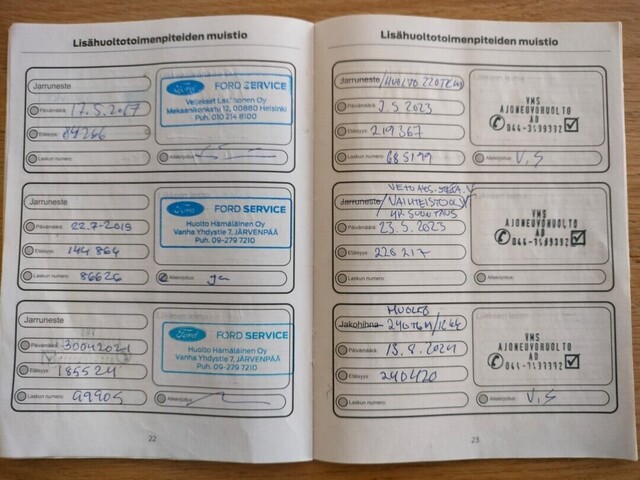 Lisähuoltotoimenpiteiden muistio
Jarruneste
Päivämäärä 17.5.2017
Etäisyys 84266
Laskun numero
Allekirjoitus
Ford FORD SERVICE
Veljekset Laakkonen Oy
Mekaanikonkatu 12, 00880 Helsinki
Puh. 010 214 8100
Jarruneste
Päivämäärä 22.7-2019
Etäisyys 144 864
Laskun numero 86626
Allekirjoitus
Ford FORD SERVICE
Huolto Hämäläinen Oy
Vanha Yhdystie 7, JÄRVENPÄÄ
Puh. 09-279 7210
Jarruneste
Päivämäärä 30042021
Etäisyys 185524
Laskun numero
Allekirjoitus
Ford FORD SERVICE
Huolto Hämäläinen Oy
Vanha Yhdystie 7, JÄRVENPÄÄ
Puh. 09-279 7210
22
Lisähuoltotoimenpiteiden muistio
Jarruneste/HUOLTO 220TKM
Päivämäärä 2.5 2023
Etäisyys 219367
Laskun numero 685199
Allekirjoitus V,S
VMS
AJONEUVOHUOLTO
AD
Jarruneste
Päivämäärä 23.5.2023
Etäisyys 220 217
Laskun numero
Allekirjoitus
VMS
AJONEUVOHUOLTO
AD
HUOLTO
Jakohihna
Päivämäärä 13.8.2024
Etäisyys 240420
Laskun numero
Allekirjoitus V,S
VMS
AJONEUVOHUOLTO
AD
23